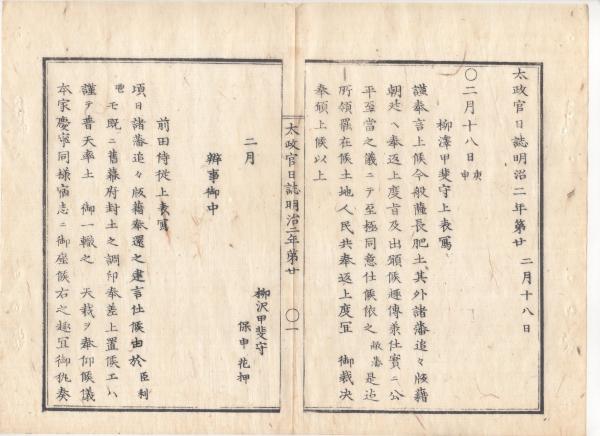 太政官日誌明治二年第廿 二月十八日
〇二月十八日庚申
柳澤甲斐守上表寫
謹奉言上候今般薩長肥土其外諸藩追々版籍
朝廷ヘ奉返上度旨及出願候趣傳兼仕實ニ公
平至當之儀ニテ至極同意仕候依之敝藩是迠
所領罷在候土地人民共奉返上度宜 御裁决
奉願上候以上
太政官日誌明治二年第廿 〇一
二月
柳沢甲斐守
保申花押
辨事御中
前田侍從上表寫
項日諸藩追々版籍奉還之建言仕候由於臣利
鬯モ既ニ舊幕府封土之調印奉差上置候エハ
謹テ普天率土 御一轍之 天裁ヲ奉仰候儀
本家慶寧同様宿志ニ御座候右之趣宜御執奏